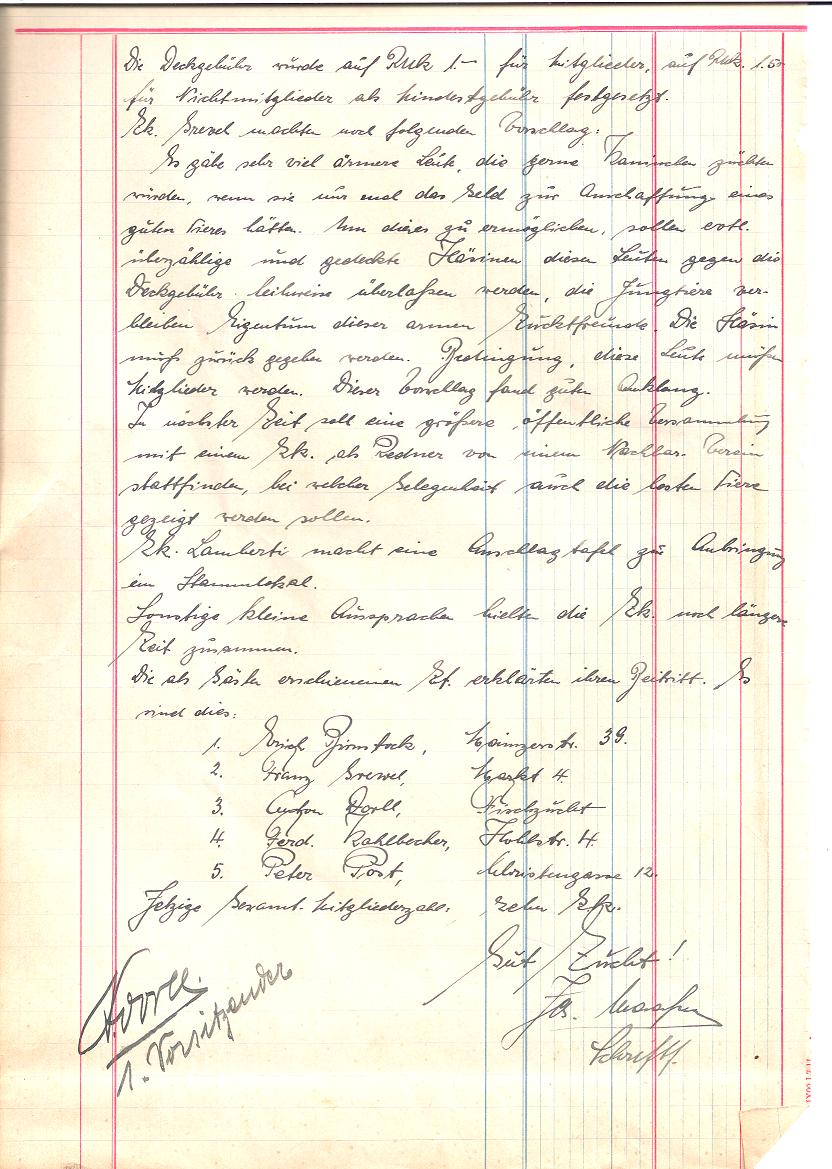 Die Deckgebühr wurde auf RMk 1.- für Mitglieder, auf RMk. 1.50
für Nichtmitglieder als Mindestgebühr festgesetzt.
Zk. Grevel machten noch folgenden Vorschlag:
Es gäbe sehr viel ärmere Leute, die gerne Kaninchen züchten
würden, wenn sie nur mal das Geld zur Anschaffung eines
guten Tieres hätten. Um dieses zu ermöglichen, sollen evtl.
überzählige und gedeckte Häsinen diesen Leuten gegen die
Deckgebühr leihweise überlaßen werden, die Jungtiere ver-
bleiben Eigentum dieser armen Zuchtfreunde. Die Häsin
muß zurück gegeben werden. Bedingung, diese Leute müßen
Mitglieder werden. Dieser Vorschlag fand guten Anklang.
In nächster Zeit soll eine größere, öffentliche Versammlung
mit einem Zk. als Redner von einem Nachbar-Verein
stattfinden, bei welcher Gelegenheit auch die besten Tiere
gezeigt werden sollen.
Zk. Lamberti macht eine Anschlagtafel zur Anbringung
im Stammlokal.
Sonstige kleine Aussprachen hielten die Zk. noch längere
Zeit zusammen.
Die als Gäste erschienenen Zf. erklärten ihren Beitritt. Es
sind dies:
1. Erich Birnstock, Mainzerstr. 39.
2. Franz Grewel, Markt 4.
3. Anton Dorll, Fischzucht
4. Ferd. Kahlbecher, Hohlstr. 4.
5. Peter Post, Christengasse 12.
Jetzige Gesamt-Mitgliederzahl: zehn Zfr.
Gut Zucht!
Jos. Maaßen
Schriftf.
A. Dorll.
1. Vorsitzender